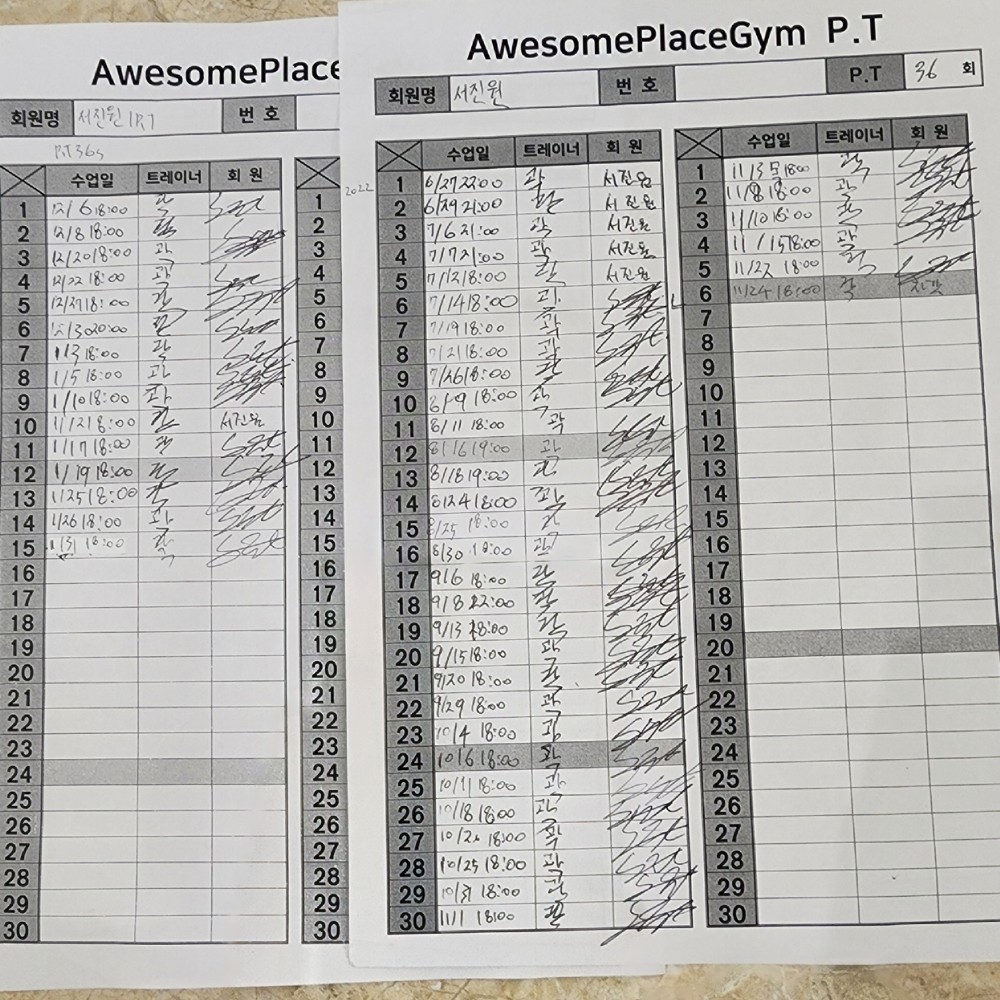 AwesomePlace
회원명 서진원
번 호
P.T 36
수업일 트레이너 회 원
1 12/6 18:00 곽
2 12/8 18:00
3 12/20 18:00 곽
4 12/22 18:00 곽
5 12/27 18:00 곽
6 12/30 20:00
7 1/3 18:00 곽
8 1/5 18:00 곽
9 1/10 18:00 곽
10 1/12 18:00 서진원
11 1/17 18:00 곽
12 1/19 18:00
13 1/25 18:00
14 1/26 18:00 곽
15 1/31 18:00 곽
16
17
18
19
20
21
22
23
24
25
26
27
28
29
30
1
2
3
4
5
6
7
8
9
10
11
12
13
14
15
16
17
18
19
20
21
22
23
24
25
26
27
28
29
30
AwesomePlaceGym P.T
회원명 서진원 번 호 P.T 36 회
2022
수업일 트레이너 회 원
1 6/27 22:00 곽 서진원
2 6/29 21:00 곽 서진원
3 7/6 21:00 곽 서진원
4 7/7 21:00 곽 서진원
5 7/12 18:00 곽 서진원
6 7/14 18:00 곽
7 7/19 18:00 곽
8 7/21 18:00 곽
9 7/26 18:00 곽
10 8/9 18:00 곽
11 8/11 18:00 곽
12 8/16 19:00 곽
13 8/18 19:00 곽
14 8/24 18:00 곽
15 8/25 18:00 곽
16 8/30 18:00 곽
17 9/6 18:00 곽
18 9/8 22:00 곽
19 9/13 18:00 곽
20 9/15 18:00 곽
21 9/20 18:00 곽
22 9/29 18:00 곽
23 10/4 18:00 곽
24 10/6 18:00 곽
25 10/11 18:00 곽
26 10/18 18:00 곽
27 18:00 곽
28 10/25 18:00 곽
29 10/31 18:00 곽
30 11/1 18:00 곽
수업일 트레이너 회 원
1 11/3 18:00 곽
2 11/8 18:00 곽
3 11/10 18:00 곽
4 11/15 18:00 곽
5 11/22 18:00 곽
6 11/24 18:00 곽
7
8
9
10
11
12
13
14
15
16
17
18
19
20
21
22
23
24
25
26
27
28
29
30